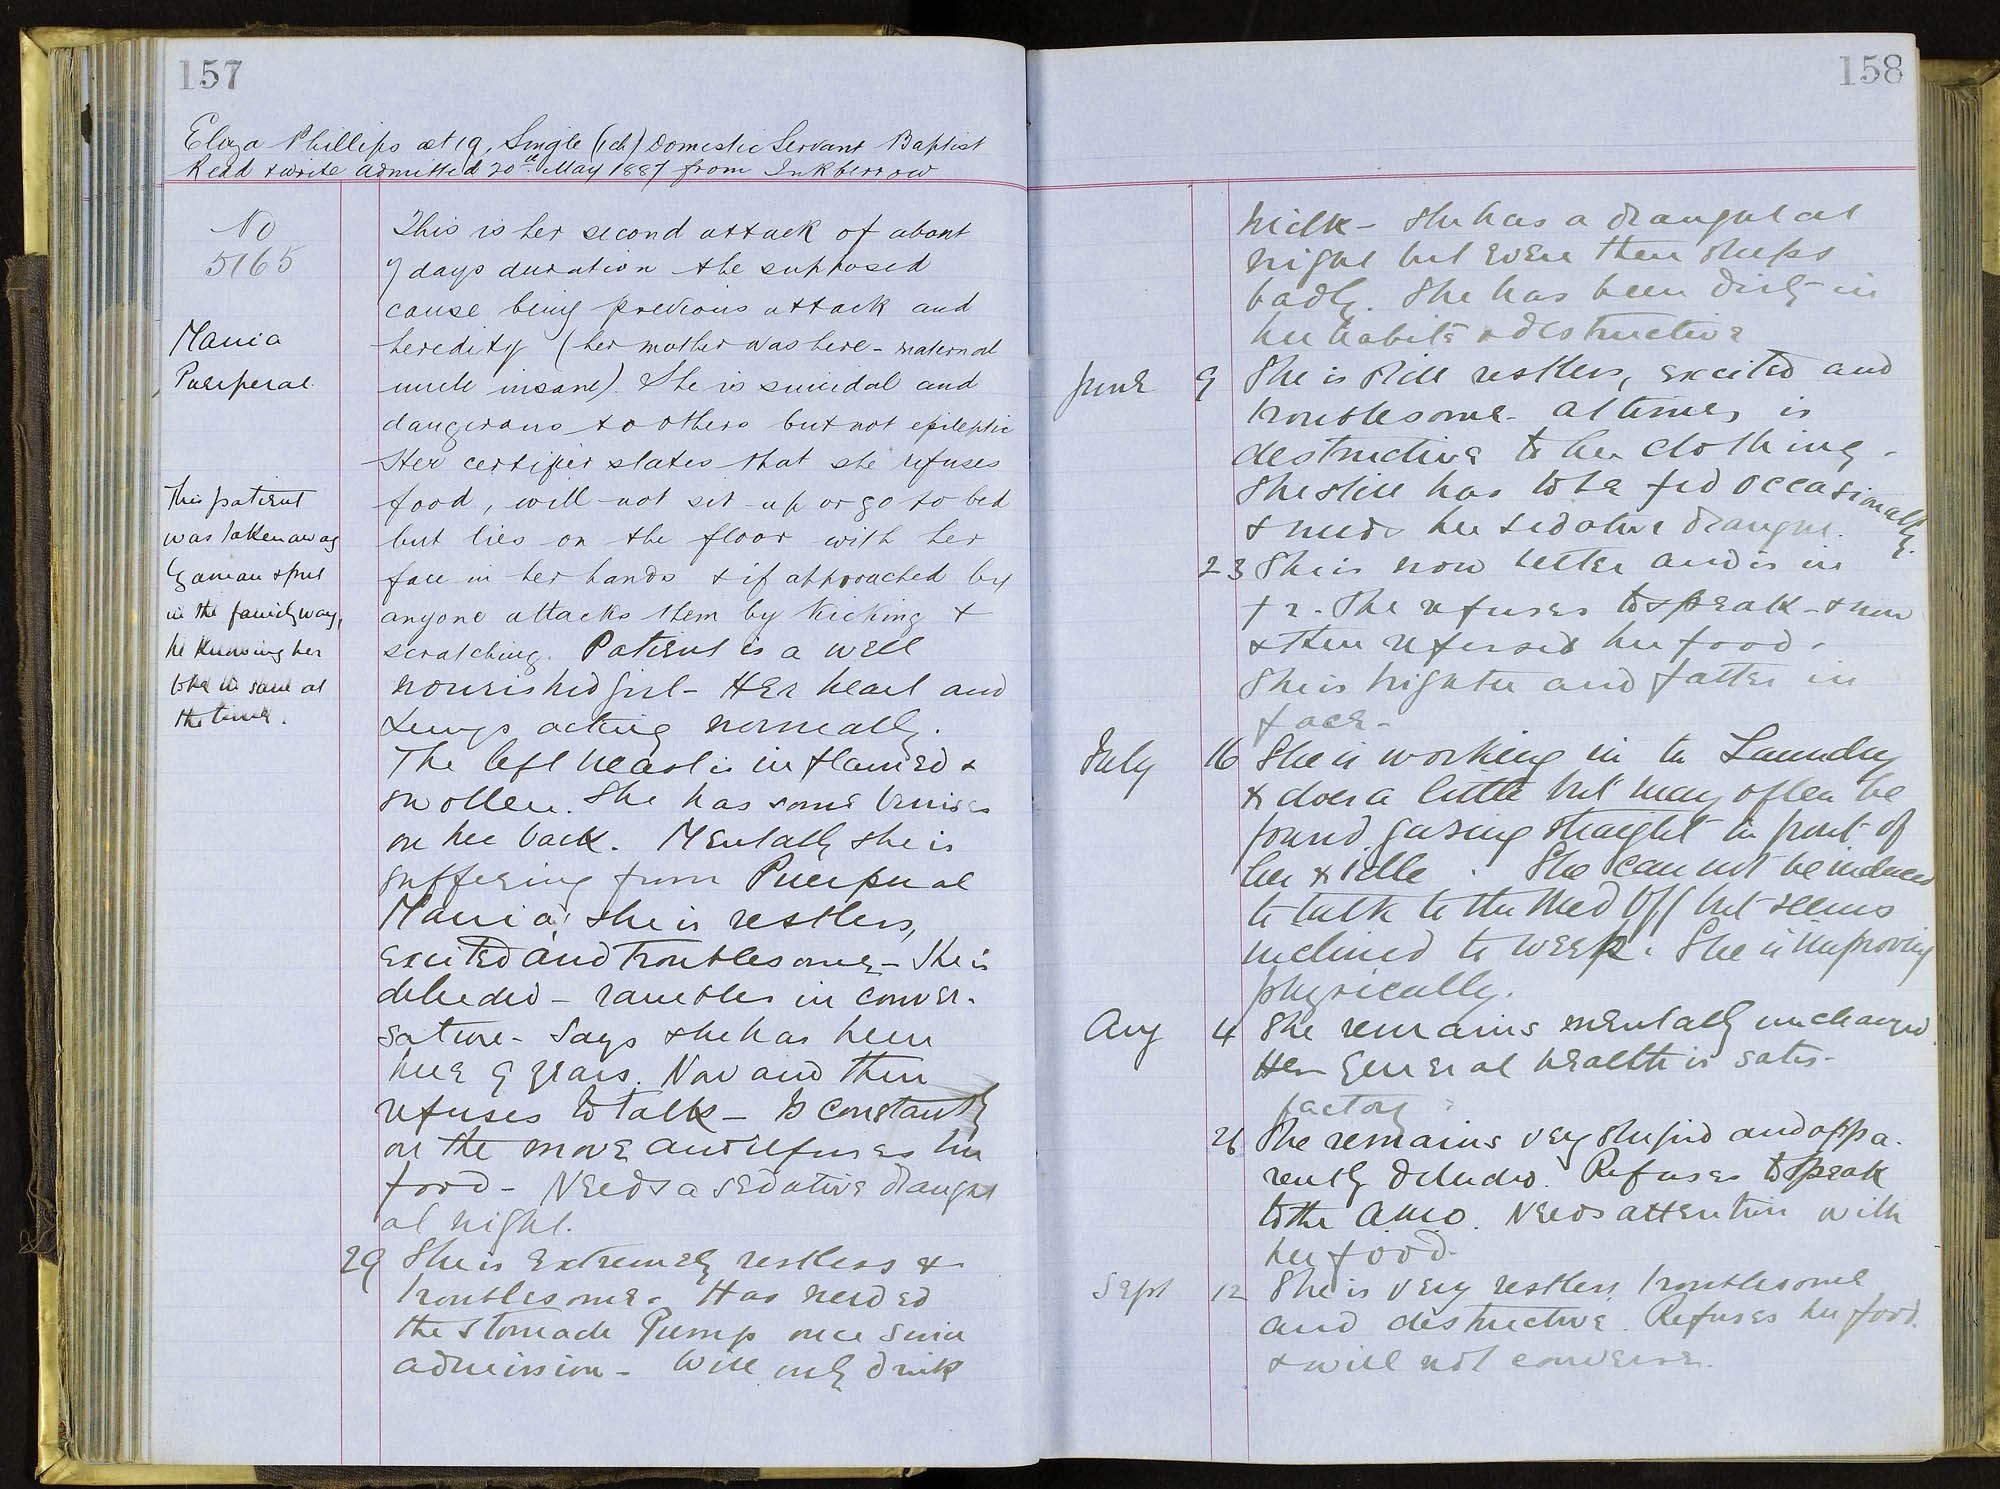 157
Eliza Phillips æt 19, Single (1ch) Domestic Servant Baptist
Read & write admitted 20th May 1887 from Inkberrow
No
5165
Mania
Puerperal.
This patient
was taken away
by a man & put
in the family way,
he knowing her
to be insane at
the time.
This is her second attack of about
7 days duration the supposed
cause being previous attack and
heredity (her mother was here - maternal
uncle insane). She is suicidal and
dangerous to others but not epileptic
Her certifier states that she refuses
food, will not sit up or go to bed
but lies on the floor with her
face in her hands & if approached by
anyone attacks them by kicking &
scratching. Patient is a well
nourished girl - Her heart and
Lungs acting normally.
The left breast is inflamed &
swollen. She has some bruises
on her back. Mentally she is
suffering from Puerperal
Mania, she is restless,
excited and troublesome - She is
deluded - rambles in conver-
sation - Says she has been
here 9 years. Now and then
refuses to talk - Is constantly
on the move and refuses her
food - Needs a sedative draught
at night.
29 She is extremely restless &
troublesome. Has needed
the stomach Pump once since
admission - Will only drink
158
milk - She has a draught at
night but even then sleeps
badly. She has been dirty in
her habits & destructive
June 9 She is still restless, excited and
troublesome - at times is
destructive to her clothing -
She still has to be fed occasionally
& needs her sedative draught.
23 She is now better and is in
F 2. She refuses to speak - & now
& then refused her food.
She is brighter and fatter in
face -
July 16 She is working in the Laundry
& does a little but may often be
found gazing straight in front of
her & idle. She can not be induced
to talk to the Med Off but seems
inclined to weep. She is improving
physically.
Aug 4 She remains mentally unchanged
Her general health is satis-
factory.
26 She remains very stupid and appa-
rently deluded. Refuses to speak
to the A.M.O. Needs attention with
her food.
Sept 12 She is very restless, troublesome
and destructive. Refuses her food.
& will not converse.